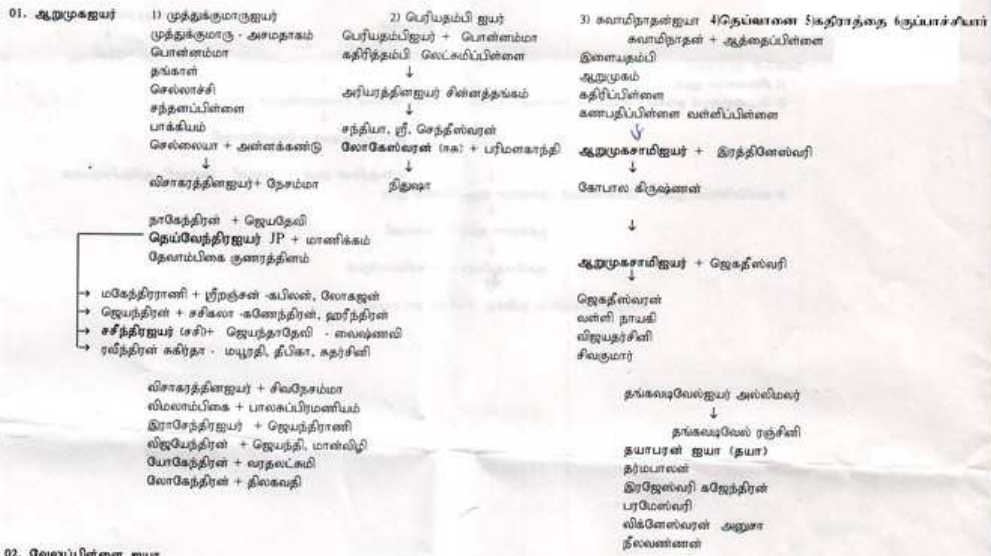 01. ஆறுமுகஐயர்
1) முத்துக்குமாருஐயர்
முத்துக்குமாரு - அசமதாகம்
பொன்னம்மா
தங்காள்
செல்லாச்சி
சந்தனப்பிள்ளை
பாக்கியம்
செல்லையா + அன்னக்கண்டு
↓
விசாகரத்தினஐயர்+ நேசம்மா
நாகேந்திரன் + ஜெயதேவி
தெய்வேந்திரஐயர் JP + மாணிக்கம்
தேவாம்பிகை குணரத்தினம்
→ மகேந்திரராணி + ஸ்ரீறஞ்சன் -கபிலன், லோகஜன்
→ ஜெயந்திரன் + சசிகலா -கணேந்திரன், ஹரீந்திரன்
→ சசீந்திரஐயர் (சசி)+ ஜெயந்தாதேவி - வைஷ்ணவி
→ ரவீந்திரன் சுகிர்தா - மயூரதி, தீபிகா, சுதர்சினி
விசாகரத்தினஐயர் + சிவநேசம்மா
விமலாம்பிகை + பாலசுப்பிரமணியம்
இராசேந்திரஐயர் + ஜெயந்திராணி
விஜயேந்திரன் + ஜெயந்தி, மான்விழி
யோகேந்திரன் + வரதலட்சுமி
லோகேந்திரன் + திலகவதி
2) பெரியதம்பி ஐயர்
பெரியதம்பிஐயர் + பொன்னம்மா
கதிரித்தம்பி லெட்சுமிப்பிள்ளை
↓
அரியரத்தினஐயர் சின்னத்தங்கம்
↓
சந்தியா, ஸ்ரீ, செந்தீஸ்வரன்
லோகேஸ்வரன் (ஈசு) + பரிமளகாந்தி
↓
நிதுஷா
3) சுவாமிநாதன்ஐயா 4)தெய்வானை 5)கதிராத்தை 6குப்பாச்சியார்
சுவாமிநாதன் + ஆத்தைப்பிள்ளை
இளையதம்பி
ஆறுமுகம்
கதிரிப்பிள்ளை
கணபதிப்பிள்ளை வள்ளிப்பிள்ளை
↓
ஆறுமுகசாமிஐயர் + இரத்தினேஸ்வரி
↓
கோபால கிருஷ்ணன்
↓
ஆறுமுகசாமிஐயர் + ஜெகதீஸ்வரி
↓
ஜெகதீஸ்வரன்
வள்ளி நாயகி
விஜயதர்சினி
சிவகுமார்
தங்கவடிவேல்ஐயர் அல்லிமலர்
↓
தங்கவடிவேல் ரஞ்சினி
தயாபரன் ஐயா (தயா)
தர்மபாலன்
இரஜேஸ்வரி கஜேந்திரன்
பரமேஸ்வரி
விக்னேஸ்வரன் அனுசா
நீலவண்ணன்
02. வேலுப்பிள்ளை ஐயா